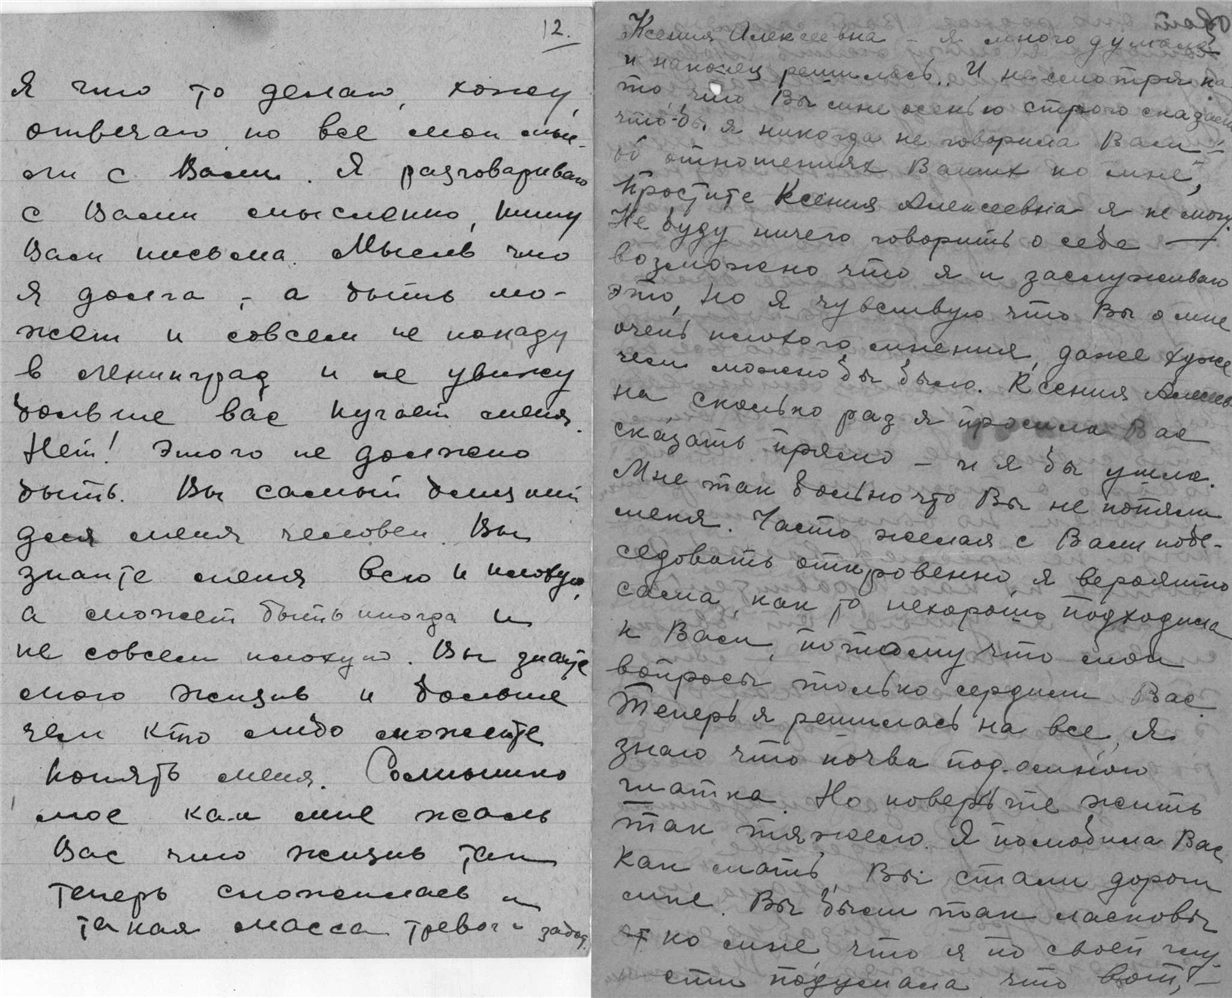 12.
Я что то делаю, хожу,
отвечаю но все мои мыс-
ли с Вами. Я разговариваю
с Вами мысленно, пишу
Вам письма. Мысль что
я долга, - а быть мо-
жет и совсем не попаду
в Ленинград и не увижу
больше вас пугает меня.
Нет! Этого не должно
быть. Вы самый близкий
для меня человек. Вы
знаите меня всю и плохую,
а может быть иногда и
не совсем плохую. Вы знаите
мою жизнь и больше
чем кто либо можете
понять меня. Солнышко
мое как мне жаль
Вас что жизнь так
теперь сложилась и
такая масса тревог и забот.
Ксения Алексеевна – я много думала
и наконец решилась. И несмотря на
то, что Вы мне осенью строго сказали
что-бы я никогда не говорила Вам –
об отношениях Ваших ко мне,
простите Ксения Алексеевна я не могу.
Не буду ничего говорить о себе –
возможно что я и заслуживаю
это, но я чувствую что Вы о мне
очень плохого мнения, даже хуже
чем можно бы было. Ксения Алексеев
на сколько раз я просила Вас
сказать прямо – и я бы ушла.
Мне так больно что Вы не поняли
меня. Часто желая с Вами побе-
седовать откровенно, я вероятно
сама, как то нехорошо подходила
к Вам, потому что мои
вопросы только сердили Вас.
Теперь я решилась на все, я
знаю что почва под мною
шатка. Но поверьте жить
так тяжело. Я полюбила Вас
как мать, Вы стали дороги
мне. Вы были так ласковы
ко мне, что я по своей глу-
сти подумала что вот, –